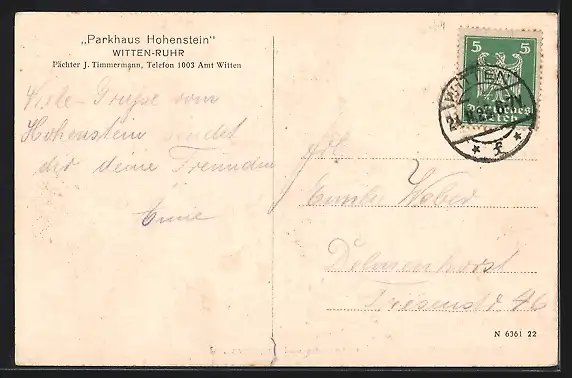 „Parkhaus Hohenstein"
WITTEN-RUHR
Pächter J. Timmermann, Telefon 1003 Amt Witten
Viele Grüße vom
Hohenstein sendet
dir deine Freundin
5 5
Deutsches
Reich
WITTEN
* f *
Weber
Delmenhorst
46
N 6361 22